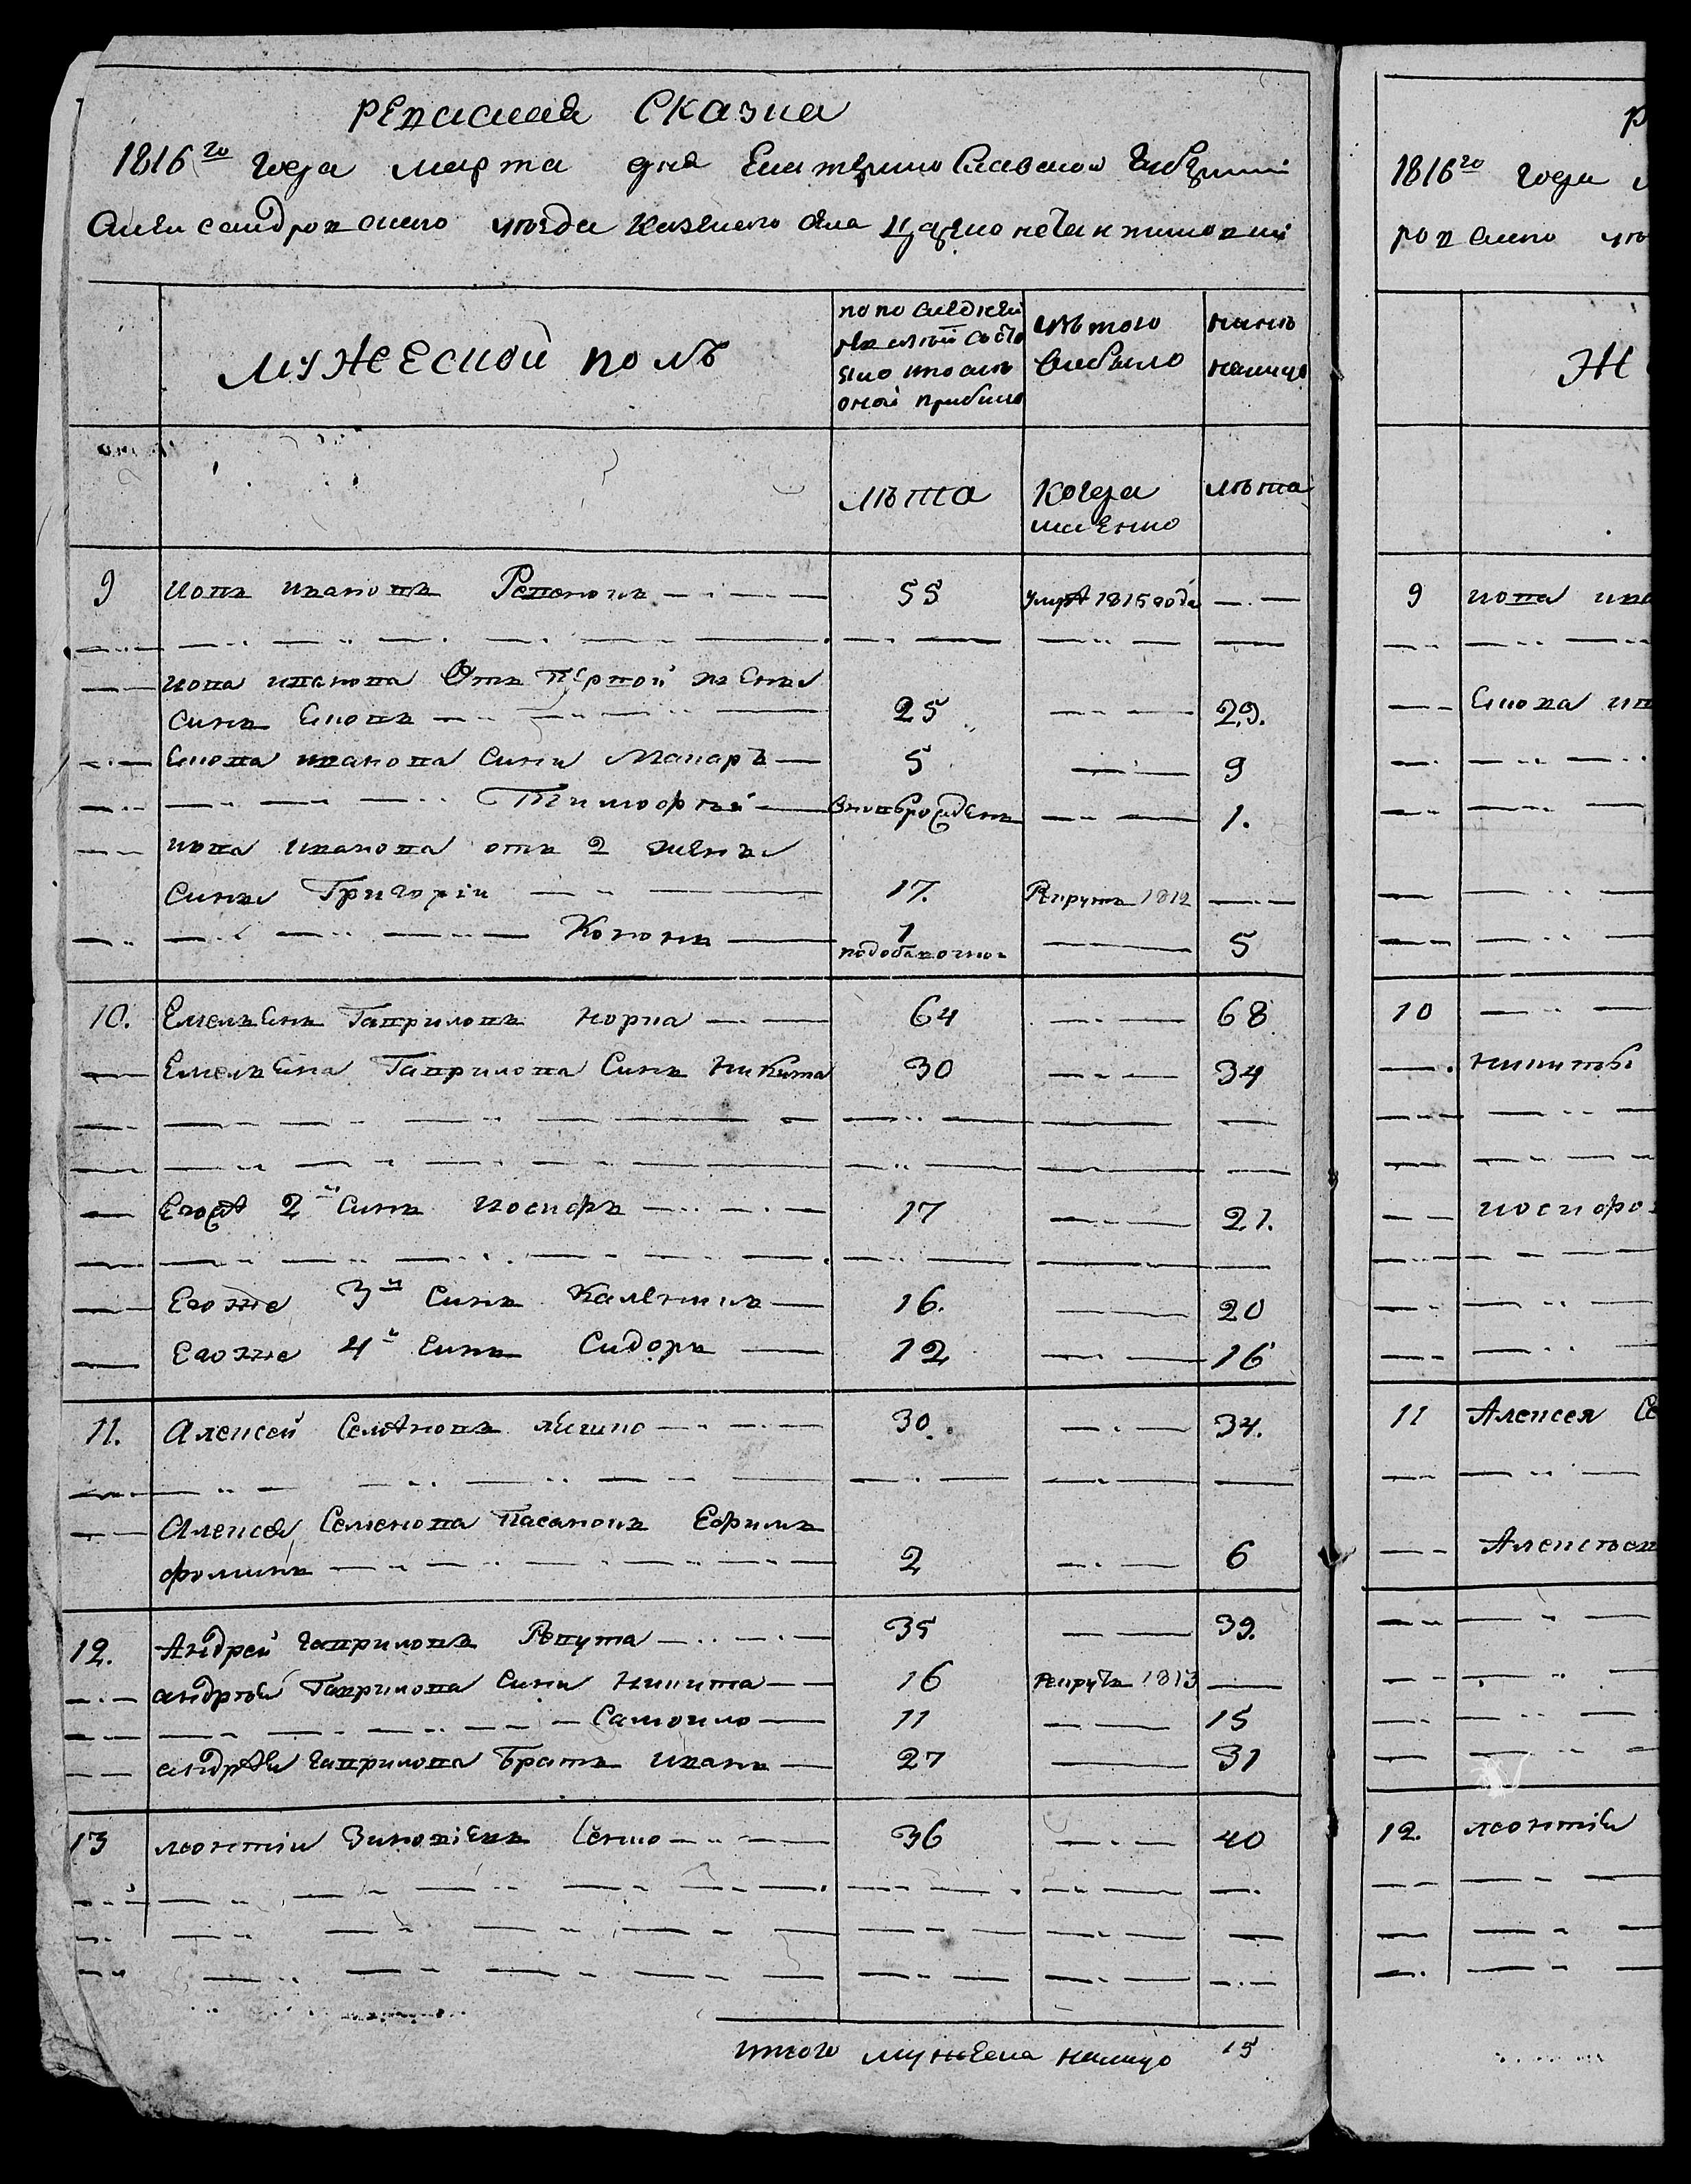 Ревизкая Сказка
1816го Года Марта дня Екатеринославской Губернии
Александровского уезда казенного села Цареконстантиновки
Мужеской полъ
по последней ревизіи состояло и после оной прибыло
изъ того выбыло
ныне налицо
лѣта
Когда именно
лѣта
9 иовъ ивановъ 55 умре 1815 года
иова иванова отъ первой жены
синъ 25 29.
иванова синъ Макаръ 5 9
Тимофѣй вновьрожденъ 1.
иова иванова отъ 2 жены
синъ Григоріи 17. Рекрутъ 1812
Кононъ 1 5
10. Емельянъ Гавриловъ корка 64 68
Емельяна Гаврилова Синъ Никита 30 34
Егоже 2й Синъ иосифъ 17 21.
Егоже 3й Синъ Каленикъ 16. 20
Егоже 4й Синъ Сидоръ 12 16
11. Алексей Семеновъ 30. 34.
Алексея Семенова Пасынокъ Ефимъ
фоминъ 2 6
12. Андрей Гавриловъ Репута 35 39.
андрѣя Гаврилова Сини Никита 16 Рекрутъ 1813
Самоило 11 15
андрея Гаврилова Братъ иванъ 27 31
13 леонтіи Зиновіевъ Сенко 36 40
итого мужеска налицо 15
1816го Года
ровского
Ж
9 иова ива
10
никиты
иосифо
11 Алексея Се
12. леонтія